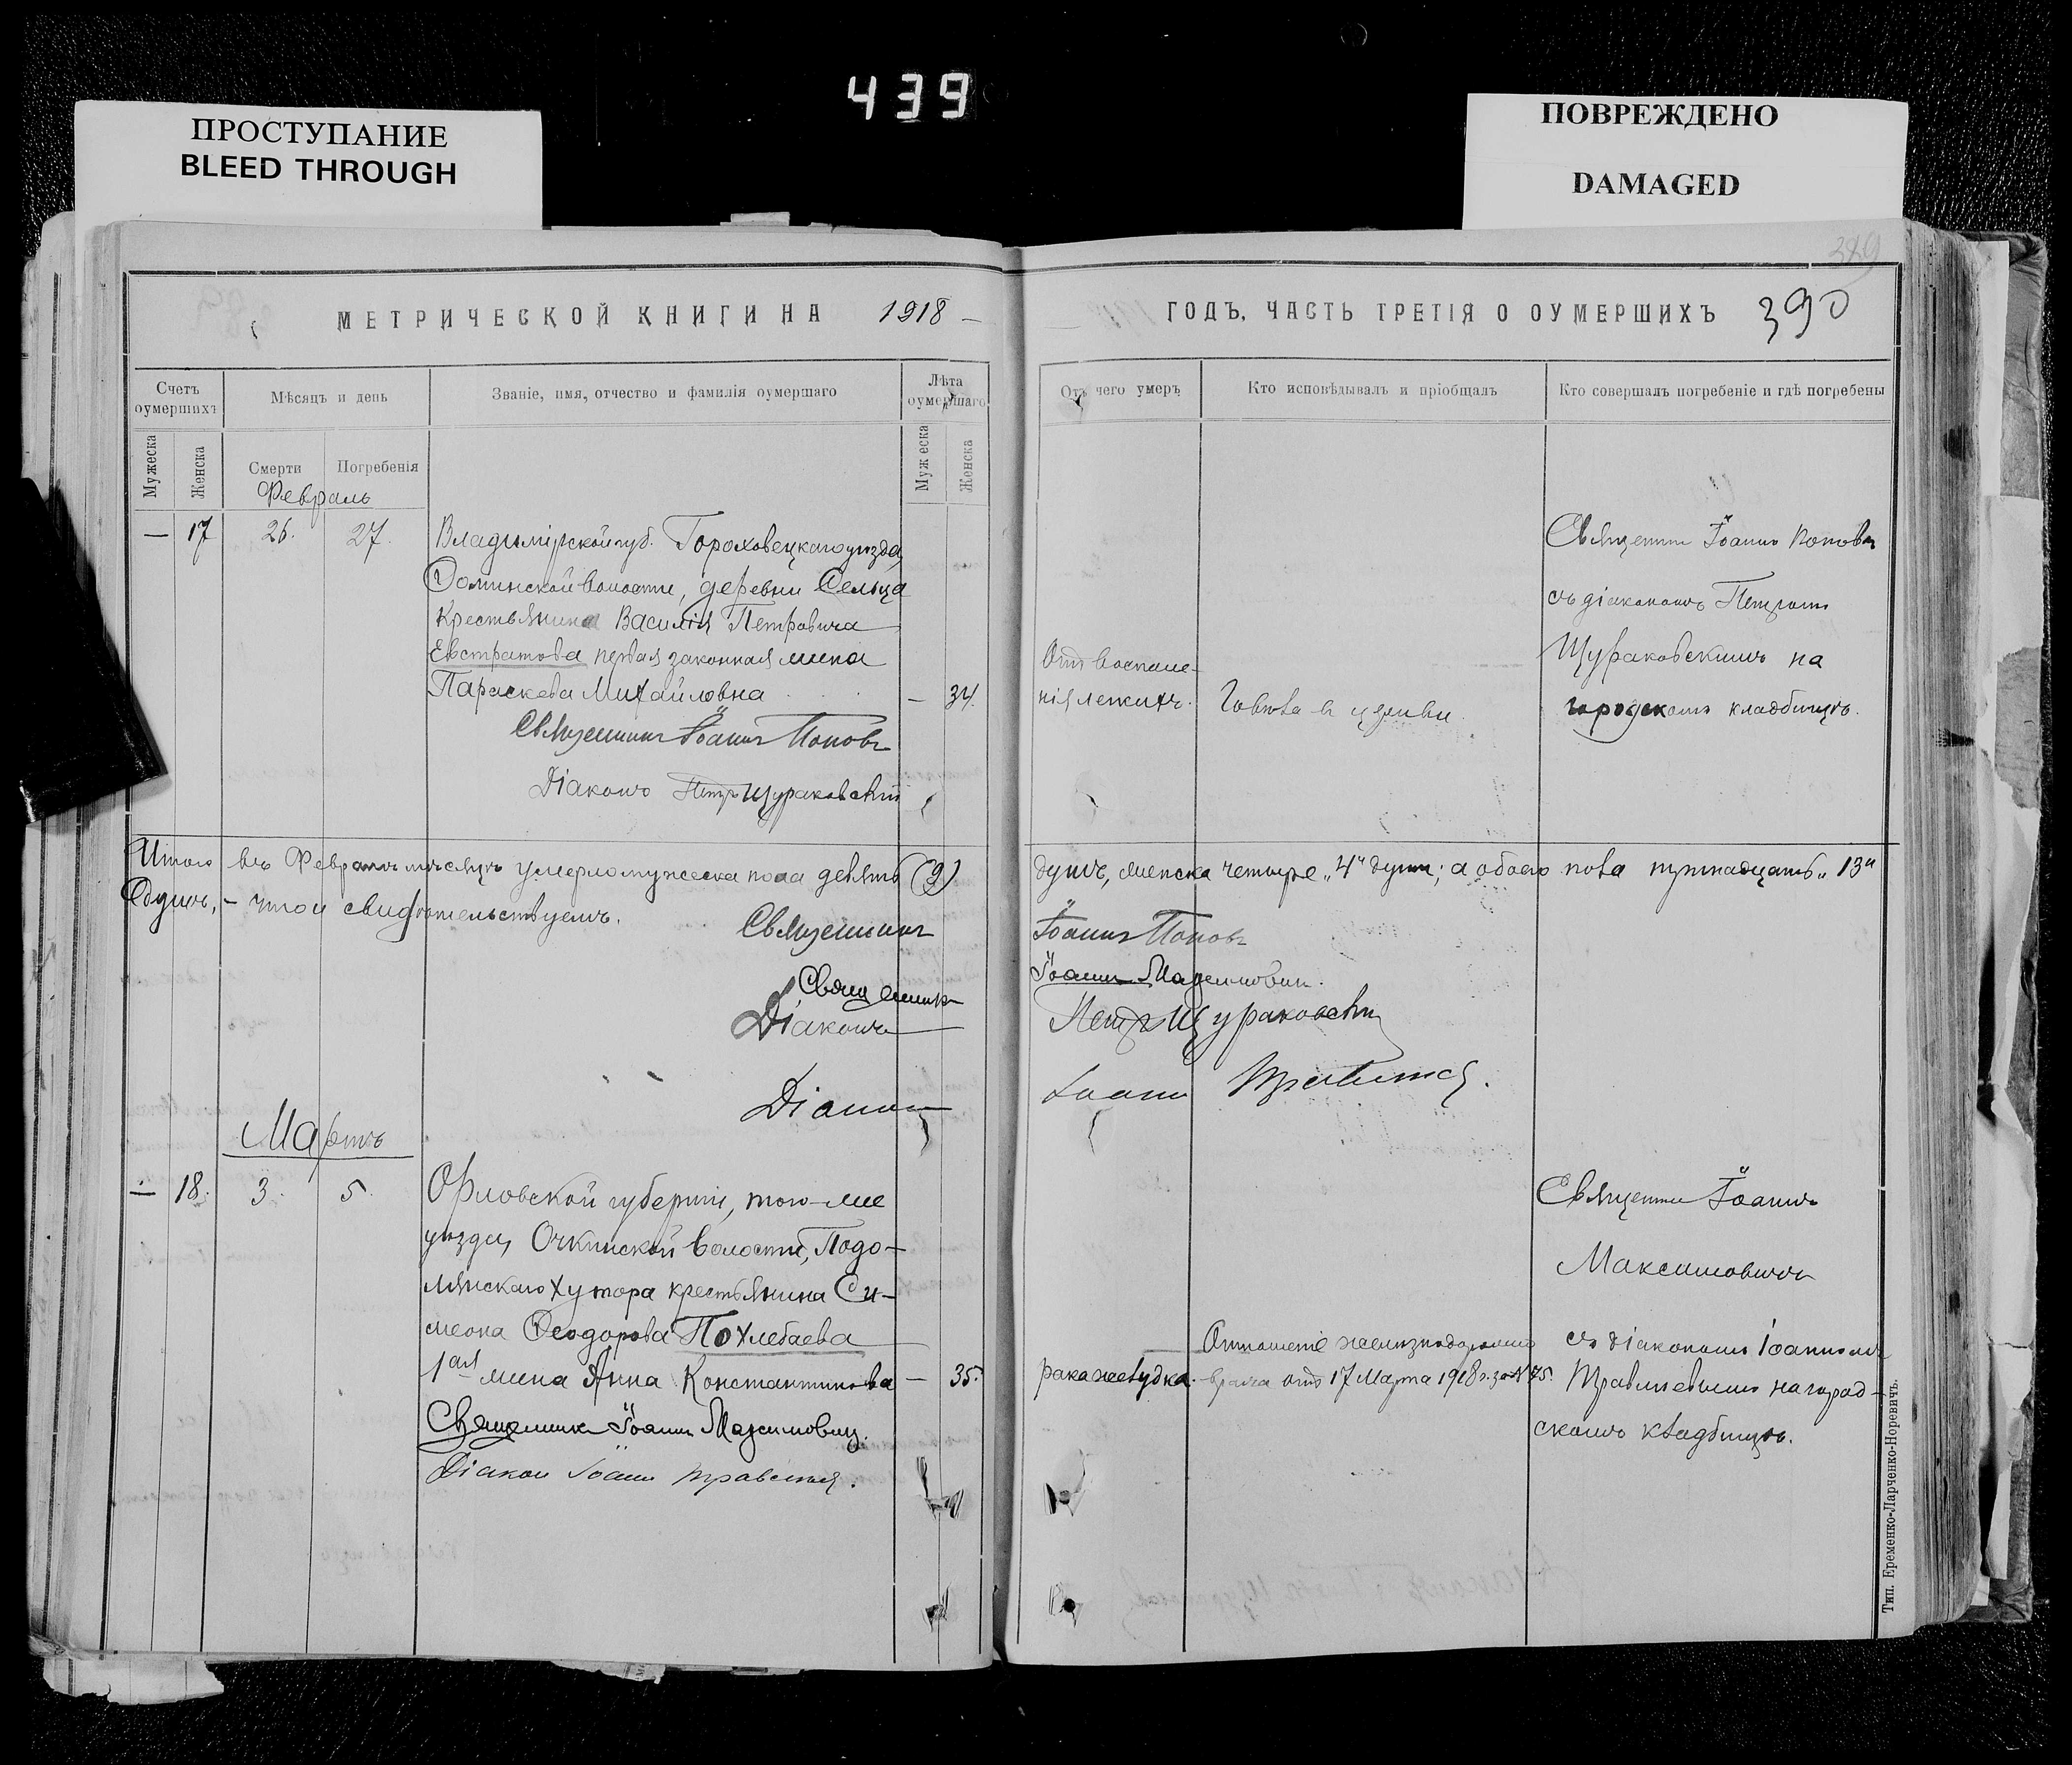 439
ПРОСТУПАНИЕ
BLEED THROUGH
ПОВРЕЖДЕНО
DAMAGED
МЕТРИЧЕСКОЙ КНИГИ НА 1918
Счетъ оумершихъ
Мѣсяцъ и день
Званіе, имя, отчество и фамилія оумершаго
Лѣта оумершаго
Мужеска
Женска
Смерти
Погребенія
Мужеска
Женска
Февраль
— 17 26. 27.
Владимірской губ. Гороховецкаго уѣзда,
волости, деревни Сельца
крестьянина Василія Петровича
Евстратова первая законная жена
Параскева Михайловна — 34.
Священникъ Іоаннъ Поповъ
Діаконъ Петръ Щураковскій
Итого въ Февралѣ мѣсяцѣ умерло мужеска пола девять (9)
– что и свидѣтельствуемъ.
Священникъ
Священникъ
Діаконъ
Діаконъ
Мартъ
— 18. 3. 5.
Орловской губерніи, того-же
уѣзда, Очкинской волости, Подо-
лянскаго хутора крестьянина Си-
меона Ѳеодорова Похлебаева
1ая жена Анна Константинова — 35.
Священник Іоанн Максимович.
Діакон Іоанн
ГОДЪ, ЧАСТЬ ТРЕТІЯ О ОУМЕРШИХЪ 390
389
Отъ чего умеръ
Кто исповѣдывалъ и пріобщалъ
Кто совершалъ погребеніе и гдѣ погребены
Отъ воспале-
нія легкихъ.
Говѣла в церкви.
Священник Іоаннъ Поповъ
съ діакономъ Петромъ
Щураковскимъ на
городскомъ кладбищѣ.
душъ, женска четыре „4" души; а обоего пола тринадцать „13"
Іоаннъ Поповъ
Іоанн Максимович.
Петръ Щураковскій
Іоанн
рака желудка.
Отношеніе желѣзнодорожн.
врача отъ 17 Марта 1918 г. за № 75.
Священник Іоаннъ
Максимовичъ
съ діакономъ Іоанномъ
на город-
скомъ кладбищѣ.
Тип. Еременко-Ларченко-Норевичъ.